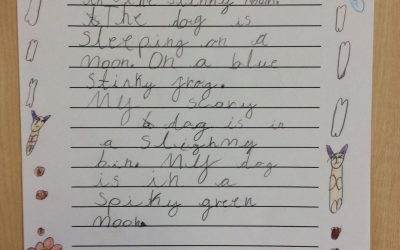 in the skinny moon.
The dog is
sleeping on a
moon. On a blue
stinky frog.
My scary
dog is in
a slighmy
bin. My dog
is in a
spiky green
moon.